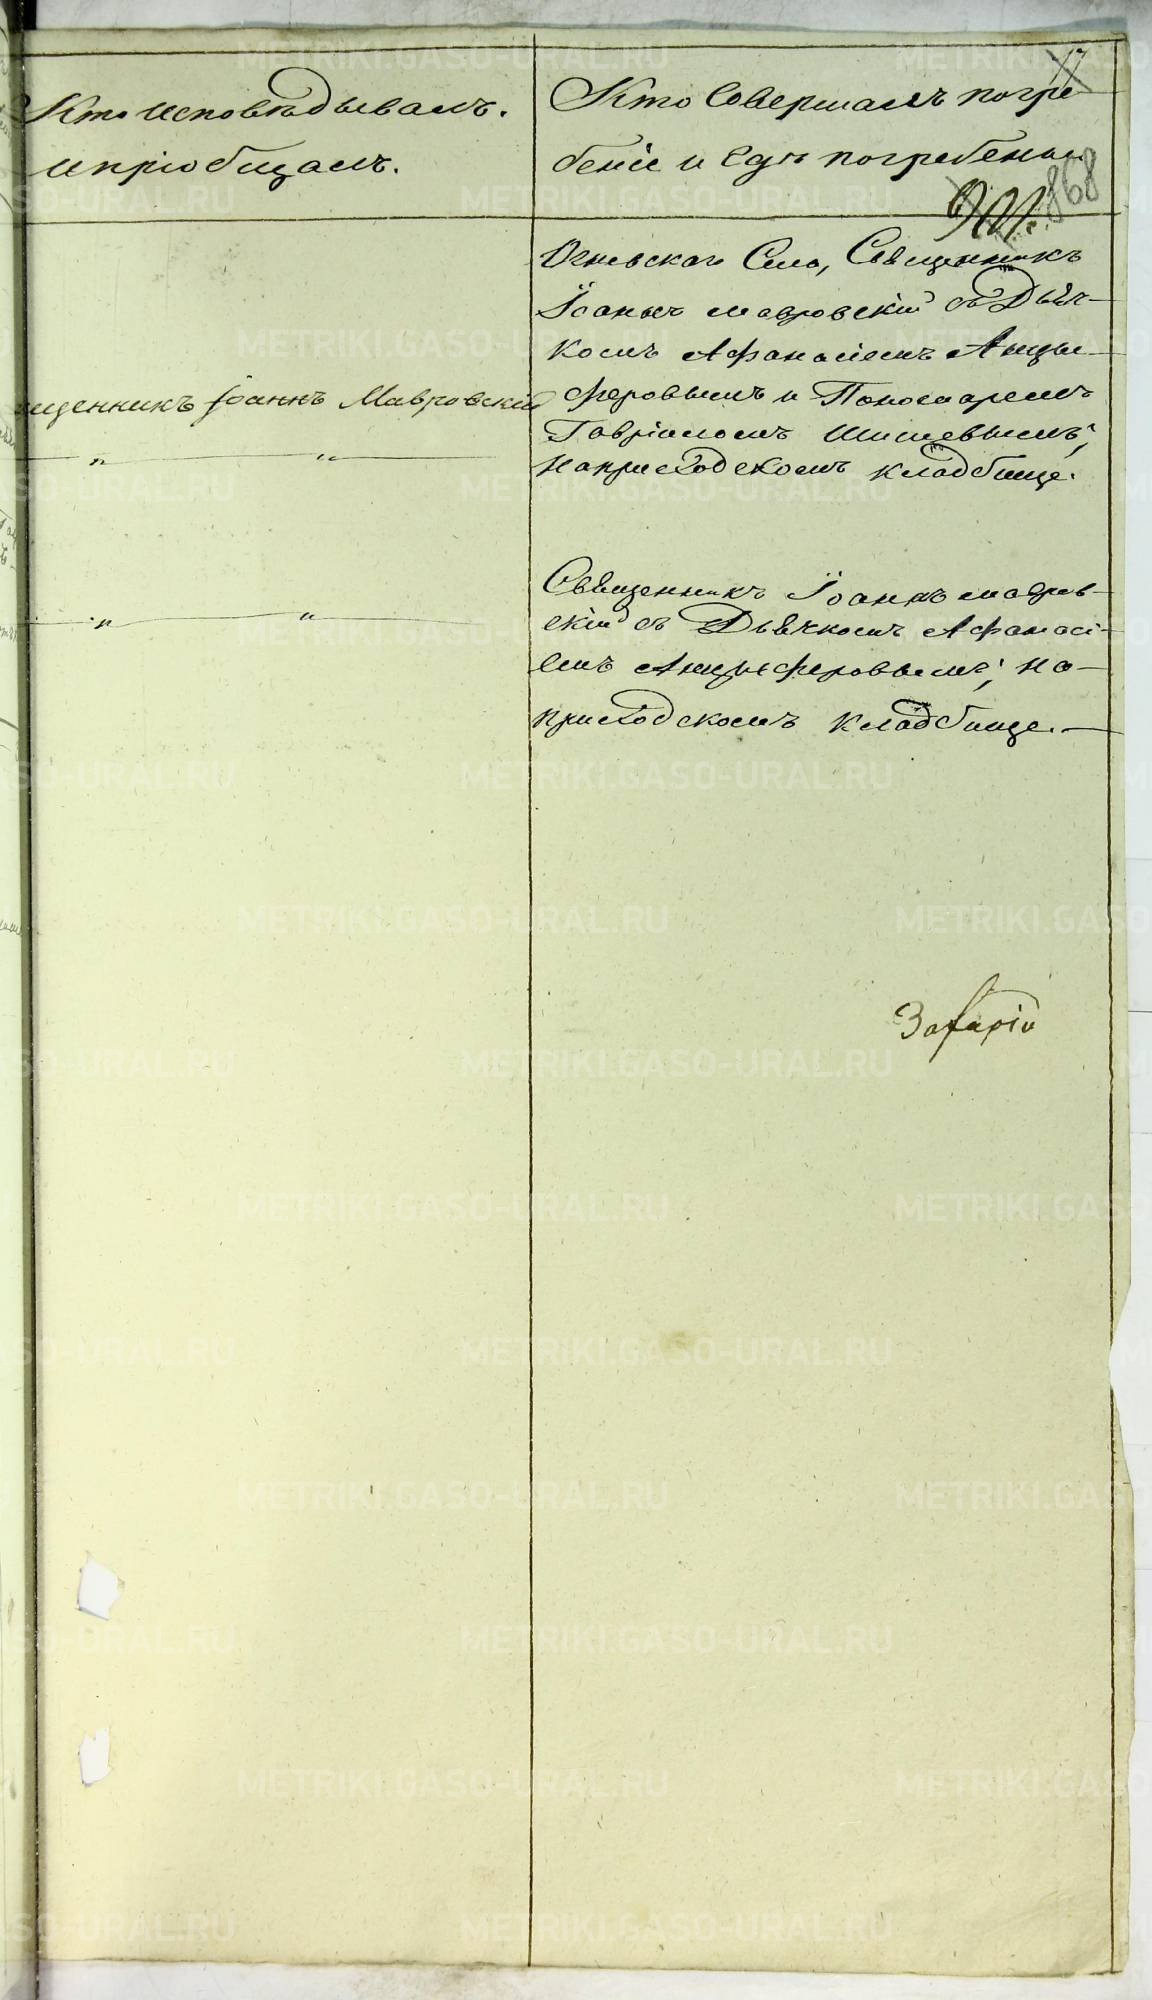 Кто исповѣдывалъ.
и пріобщалъ.
Кто совершалъ погре
бенiе и гдѣ погребены.
17
868
Огневскаго Села, Священникъ
Іоаннъ Мавровскій съ Дьяч-
комъ Афанасіемъ Анцы-
феровымъ и Пономаремъ
Гавріиломъ Шишевымъ;
на приходскомъ кладбище.
щенникъ Іоаннъ Мавровскій
— „ — “ —
Священникъ Іоаннъ Мавров-
скій съ Дьячкомъ Афанасі-
емъ Анцыферовымъ; на-
приходскомъ кладбище. —
— „ — “ —
METRIKI.GASO-URAL.RU